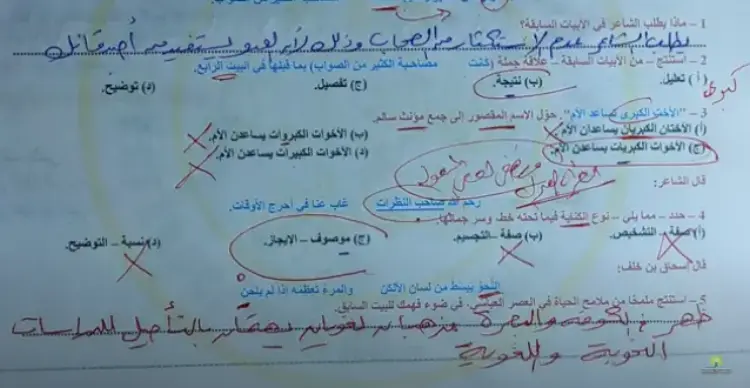 1 – ماذا يطلب الشاعر في الأبيات السابقة؟
يطلب الشاعر عدم الاستكثار من الصحاب وذلك لأن العدو يستفيد من أصدقائك
2 – استنتج – من الأبيات السابقة – علاقة جملة (كانت مصاحبة الكثير من الصواب) بما قبلها في البيت الرابع.
(أ) تعليل. (ب) نتيجة. (ج) تفصيل. (د) توضيح.
كبرى
3 – "الأخت الكبرى تساعد الأم". حوّل الاسم المقصور إلى جمع مؤنث سالم.
(أ) الأختان الكبريان يساعدان الأم. (ب) الأخوات الكبروات يساعدن الأم.
(ج) الأخوات الكبريات يساعدن الأم. (د) الأخوات الكبيرات يساعدن الأم.
قال الشاعر:
رحم الله صاحب النظرات غاب عنا في أحرج الأوقات.
4 – حدد – مما يلي – نوع الكناية فيما تحته خط، وسر جمالها.
(أ) صفة – التشخيص. (ب) صفة – التجسيم. (ج) موصوف – الإيجاز. (د) نسبة – التوضيح.
قال إسحاق بن خلف:
النحو يبسط من لسان الألكن والمرء تعظمه إذا لم يلحن
5 – استنتج ملمحًا من ملامح الحياة في العصر العباسي، في ضوء فهمك للبيت السابق.
ظهر في الكوفة والبصرة مذهبان لغويان يهتمان بالتأصيل للدراسات
النحوية واللغوية